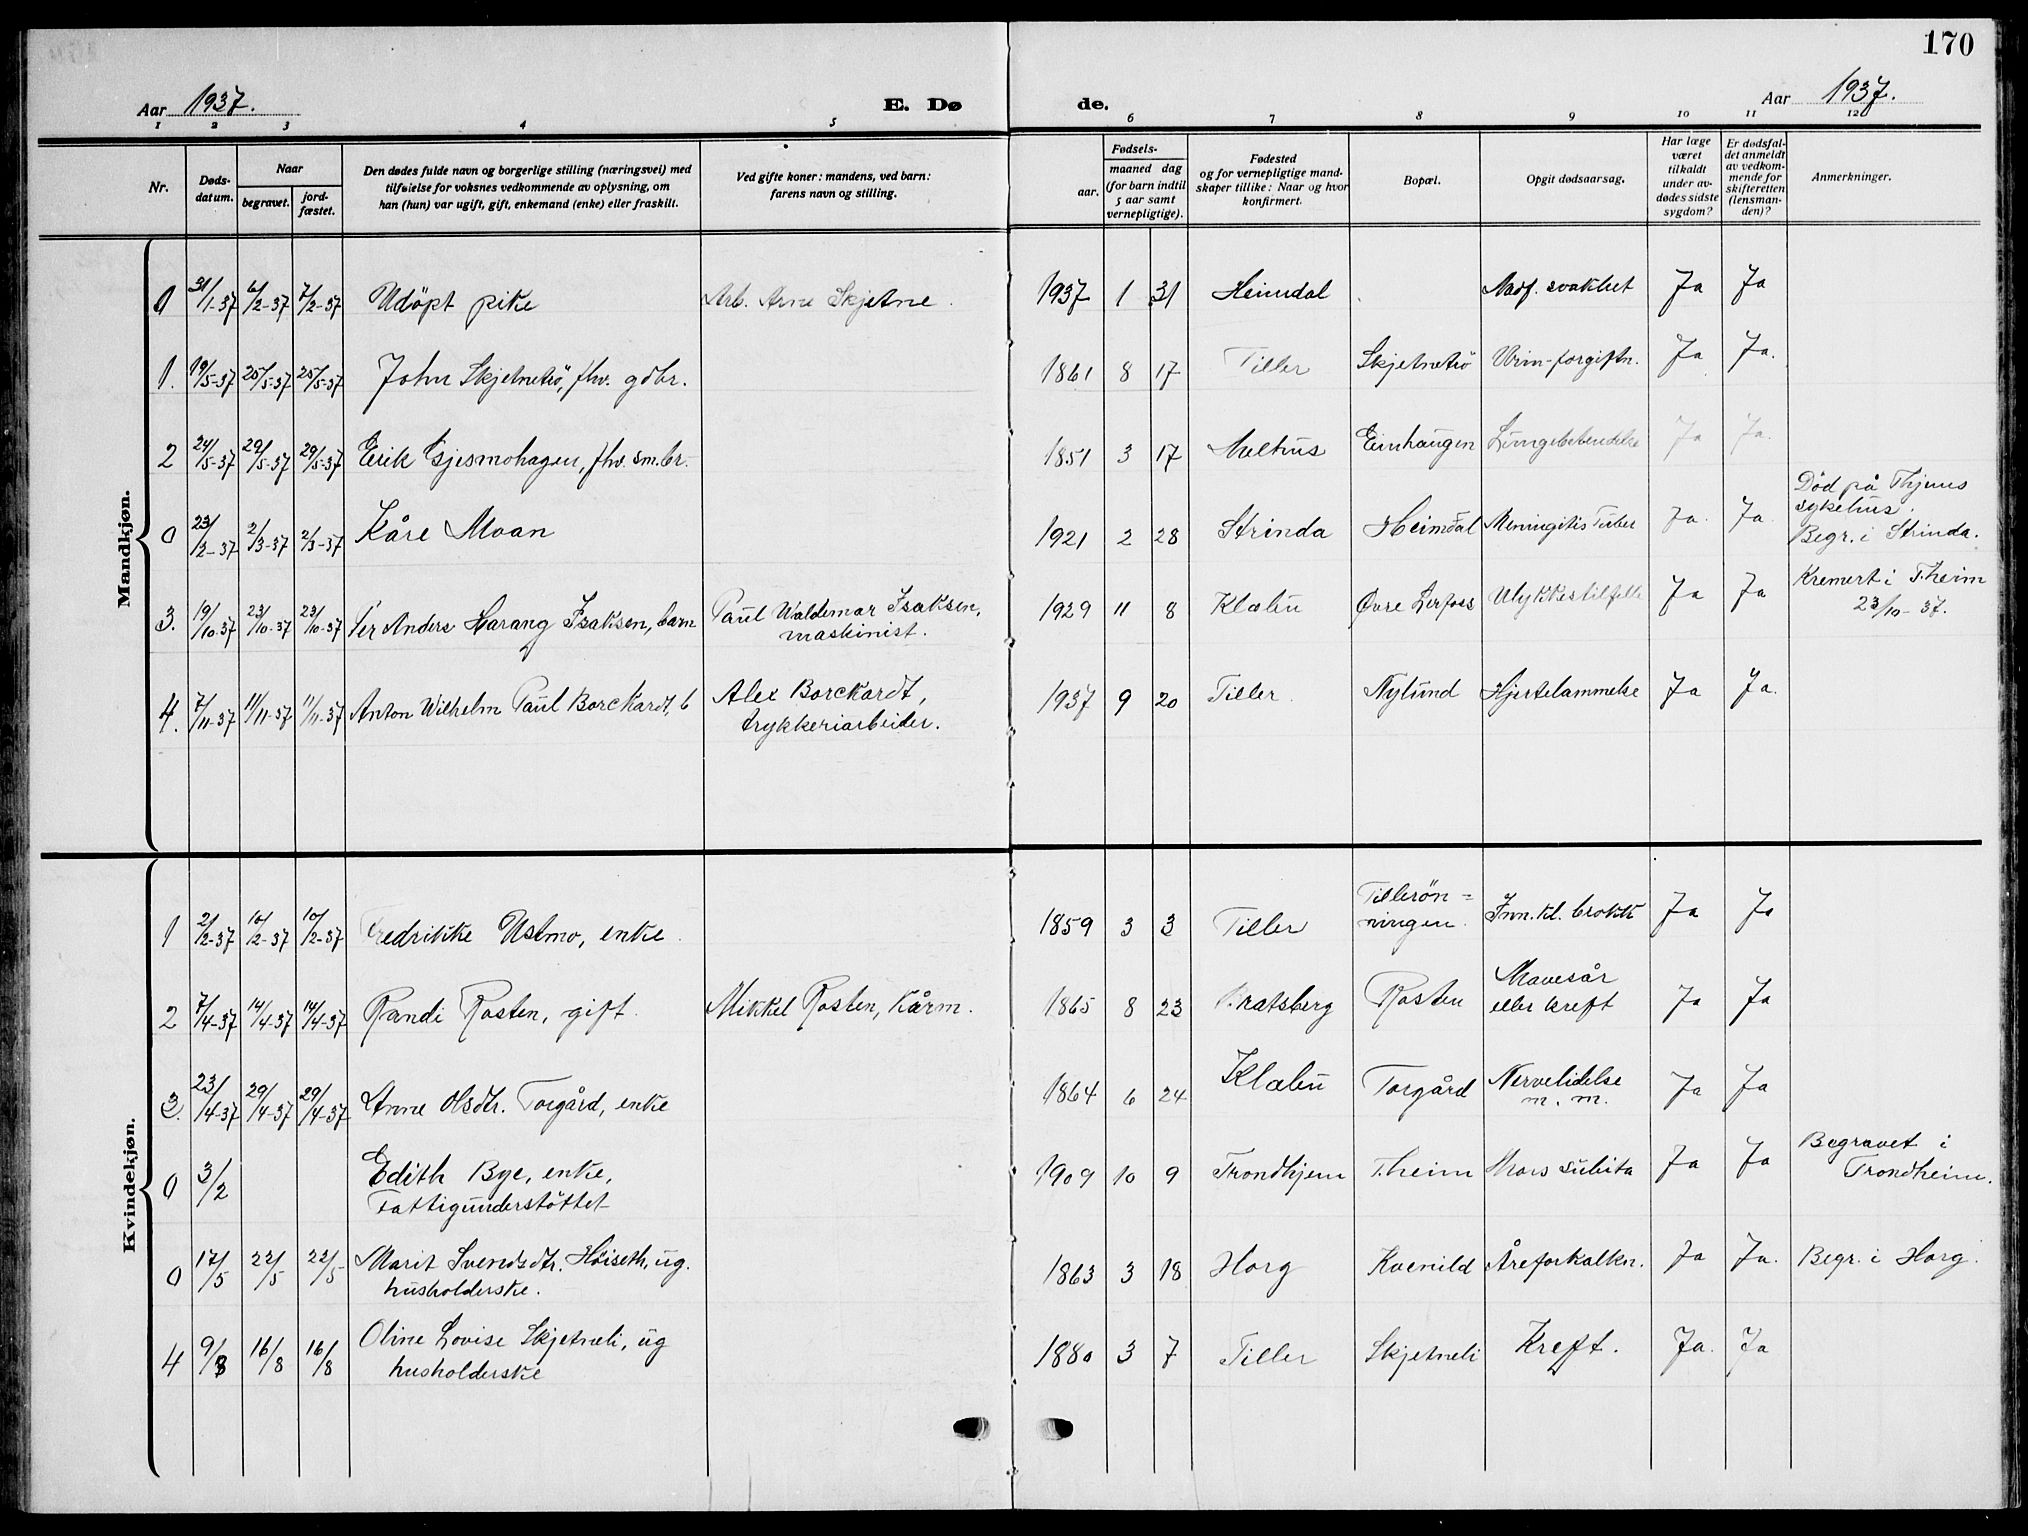 170
Aar 1937. E. Dø de. Aar 1937.
1 2 3 4 5 6 7 8 9 10 11 12
Nr.
Døds-
datum.
Naar
begravet.
jord-
fæstet.
Den dødes fulde navn og borgerlige stilling (næringsvei) med
tilføielse for voksnes vedkommende av oplysning, om
han (hun) var ugift, gift, enkemand (enke) eller fraskilt.
Ved gifte koner: mandens, ved barn:
farens navn og stilling.
Fødsels-
aar.
maaned dag
(for barn indtil
5 aar samt
vernepligtige).
Fødested
og for vernepligtige mand-
skaper tillike: Naar og hvor
konfirmert.
Bopæl.
Opgit dødsaarsag.
Har læge
været
tilkaldt
under av-
dødes sidste
sygdom?
Er dødsfal-
det anmeldt
av vedkom-
mende for
skifteretten
(lensman-
den)?
Anmerkninger.
Mandkjøn.
0 31/1-37 6/2-37 7/2-37 Udöpt pike Arb. Arne Skjetne. 1937 1 31 Heimdal Medf. svakhet Ja Ja
1. 19/5-37 25/5-37 25/5-37 John Skjetnetrö, fhv. gdbr. 1861 8 17 Tiller Skjetnetrö Urin-forgiftn. Ja Ja.
2 24/5-37 29/5-37 29/5-37 Erik Gjesmohagen, fhv. sm.br. 1851 3 17 Melhus Einhaugen Lungebetendelse Ja Ja.
0 23/2-37 2/3-37 2/3-37 Kåre Moan 1921 2 28 Strinda Heimdal Meningitis Tuber Ja. Ja
Død på Thjems
sykehus.
Begr. i Strinda.
3. 19/10-37 23/10-37 23/10-37 Per Anders Harang Isaksen, barn Paul Waldemar Isaksen,
maskinist.
1929 11 8 Klæbu Øvre Lerfoss Ulykkestilfelle Ja Ja
Kremert i T.heim
23/10-37.
4. 7/11-37 11/11-37 11/11-37 Anton Wilhelm Paul Borckardt, b Alex Borckardt,
trykkeriarbeider.
1937 9 20 Tiller. Nylund Hjertelammelse Ja Ja.
Kvindekjøn.
1 2/2-37 10/2-37 10/2-37 Fredrikke Ustmo, enke. 1859 3 3 Tiller Tillerön=
ningen. Inn.kl. brokk Ja Ja
2 7/4-37 14/4-37 14/4-37 Randi Rosten, gift. Mikkel Rosten, kårm. 1865 8 23 Bratsberg Rosten Mavesår
eller kreft Ja Ja
3. 23/4-37 29/4-37 29/4-37 Anne Olsdtr. Torgård, enke 1864 6 24 Klæbu Torgård Nervelidelse
m. m. Ja Ja
0 3/2 Edith Bye, enke,
Fattigunderstöttet
1909 10 9 Trondhjem T.heim Mors subita Ja Ja
Begravet i
Trondheim.
0 17/5 22/5 22/5 Marit Svendsdtr. Höiseth, ug.
husholderske.
1863 3 18 Horg Kvenild Åreforkalkn. Ja Ja. Begr. i Horg.
4 9/8 16/8 16/8 Oline Lovise Skjetneli, ug
husholderske
1880 3 7 Tiller Skjetneli Kreft. Ja. Ja